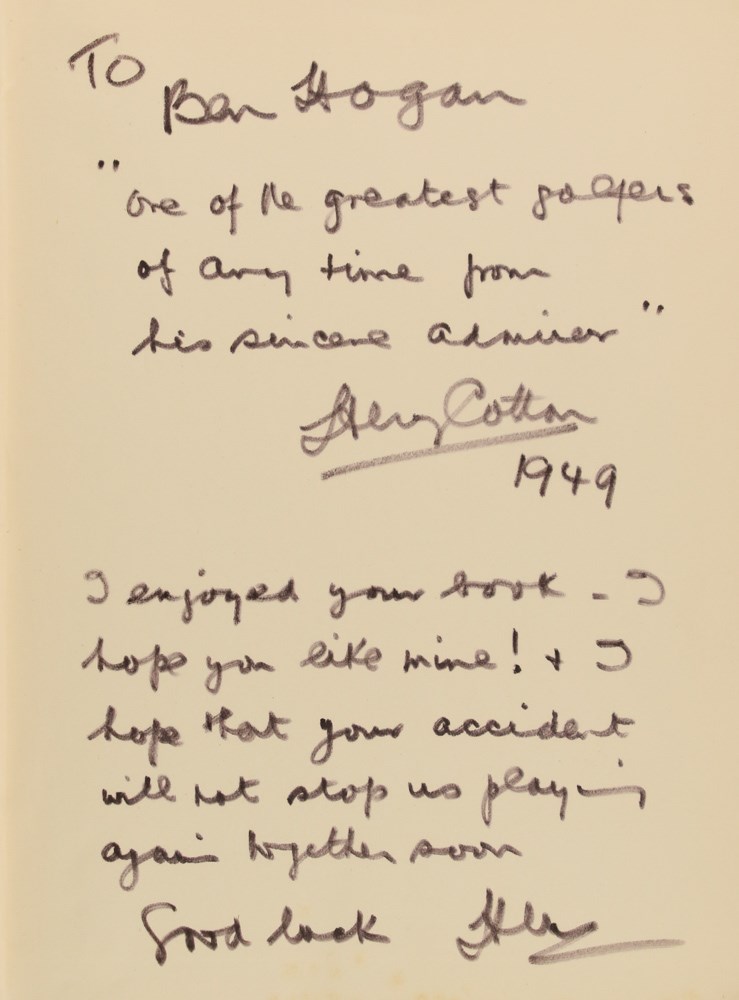 TO
Ben Hogan
"one of the greatest golfers
of any time from
his sincere admirer"
Henry Cotton
1949
I enjoyed your book - I
hope you like mine! + I
hope that your accident
will not stop us playing
again together soon
Good luck Henry